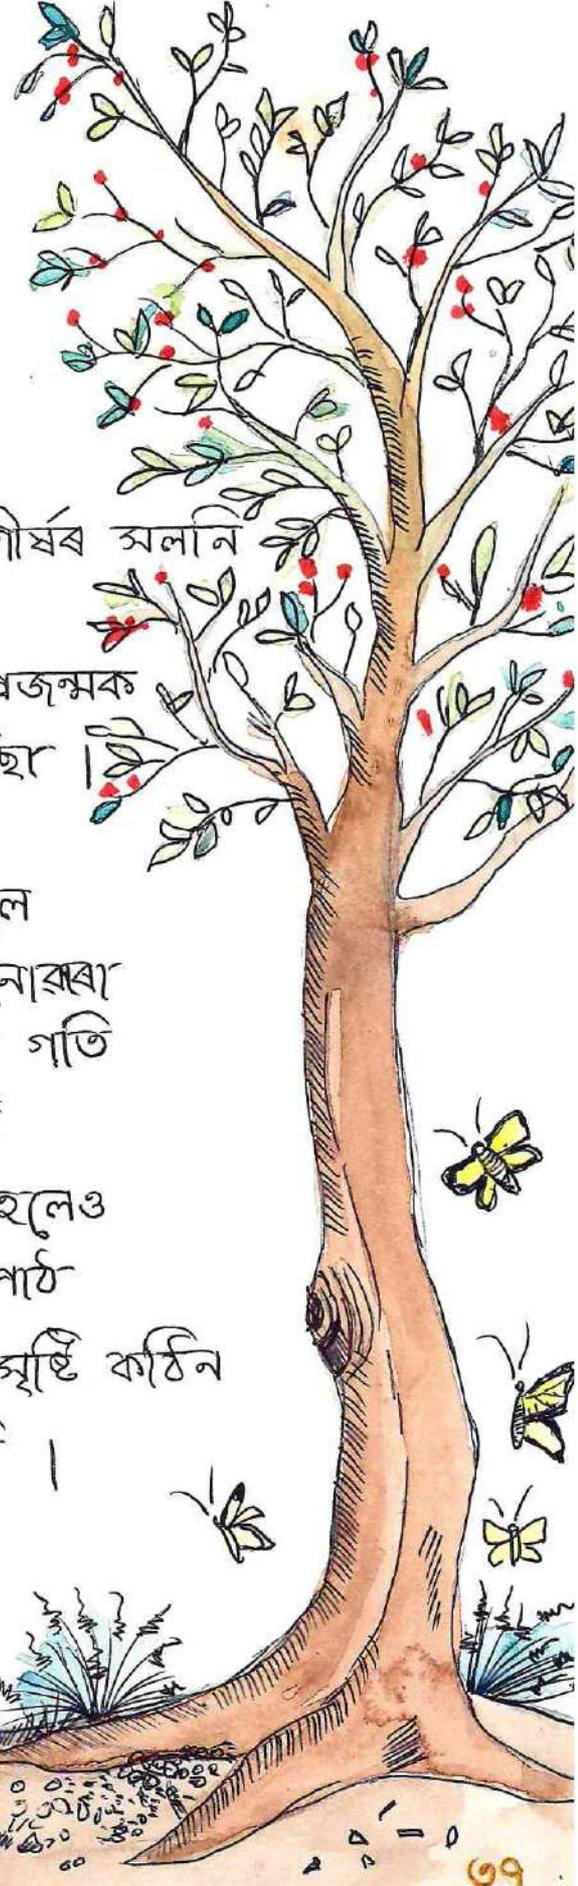 শীৰ্ষৰ সলনি
প্ৰজন্মক
ছা ।
ল
নোৱাৰা
গতি
হলেও
পাঠ
সৃষ্টি কঠিন
।
৩৭